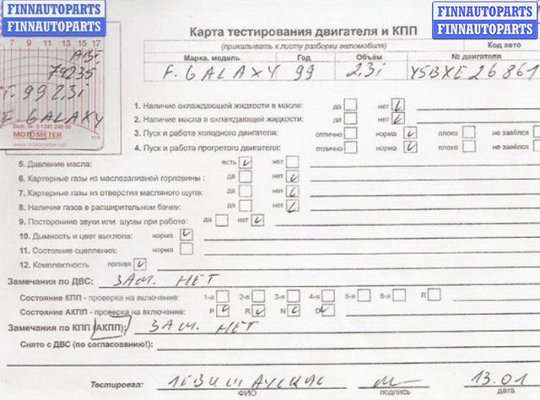 FINNAUTOPARTS
FINNAUTOPARTS
FINNAUTOPARTS
FINNAUTOPARTS
7 9 11 13 15 17
MOTOMETER
F. GALAXY
Карта тестирования двигателя и КПП
(прикалывать к листу разборки автомобиля)
Код авто
Марка, модель Год Объём № двигателя
F. GALAXY 99 2.3i Y5BXE26861
1. Наличие охлаждающей жидкости в масле: да нет
2. Наличие масла в охлаждающей жидкости: да нет
3. Пуск и работа холодного двигателя: отлично норма плохо не завёлся
4. Пуск и работа прогретого двигателя: отлично норма плохо не завёлся
5. Давление масла: есть нет
6. Картерные газы из маслозаливной горловины: да нет
7. Картерные газы из отверстия масляного щупа: да нет
8. Наличие газов в расширительном бачке: да нет
9. Посторонние звуки или шумы при работе: да нет
10. Дымность и цвет выхлопа: норма
11. Состояние сцепления: норма
12. Комплектность полная
Замечания по ДВС: ЗАМ. НЕТ
Состояние КПП - проверка на включение: 1-я 2-я 3-я 4-я 5-я 6-я R
Состояние АКПП - проверка на включение: P R N D
Замечания по КПП (АКПП): ЗАМ. НЕТ
Снято с ДВС (по согласованию!):
Тестировал: 13.01
ФИО подпись дата